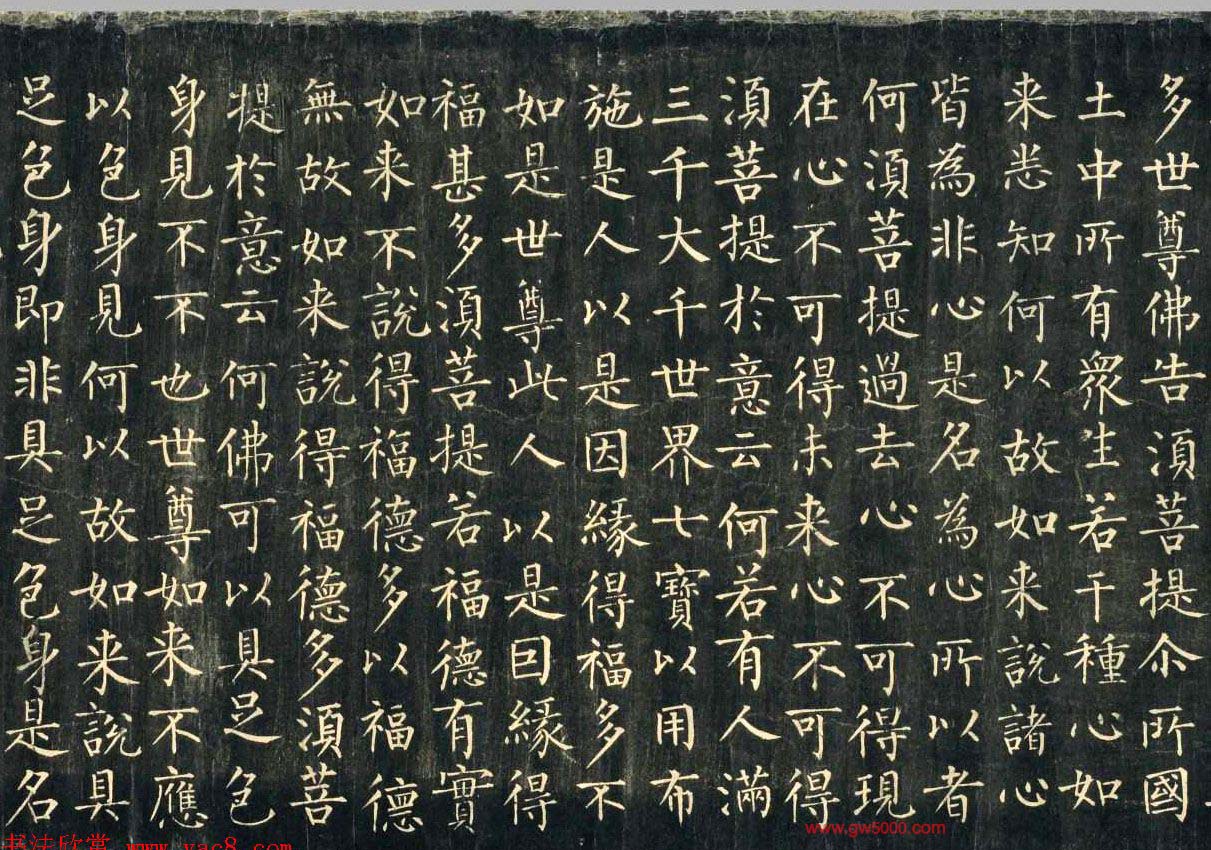 多世尊佛告須菩提尒所國
土中所有眾生若干種心如
来悉知何以故如来說諸心
皆為非心是名為心所以者
何須菩提過去心不可得現
在心不可得未来心不可得
須菩提於意云何若有人滿
三千大千世界七寶以用布
施是人以是因緣得福多不
如是世尊此人以是囙緣得
福甚多須菩提若福德有實
如来不說得福德多以福德
無故如来說得福德多須菩
提於意云何佛可以具足色
身見不不也世尊如来不應
以色身見何以故如来說具
足色身即非具足色身是名
www.gw5000.com
书法欣赏 www.yac8.com